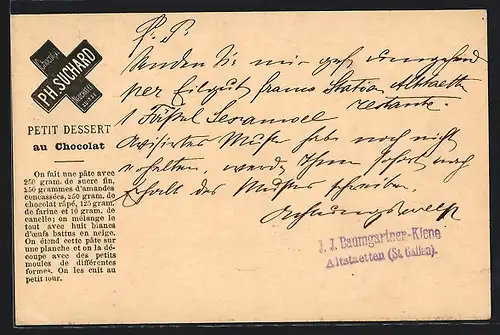 Chocolat
PH. SUCHARD
NEUCHATEL
SUISSE
PETIT DESSERT
au Chocolat
On fait une pâte avec
250 gram. de sucre fin,
250 grammes d'amandes
concassées, 250 gram. de
chocolat râpé, 125 gram.
de farine et 10 gram. de
canelle; on mélange le
tout avec huit blancs
d'œufs battus en neige.
On étend cette pâte sur
une planche et on la dé-
coupe avec des petits
moules de différentes
formes. On les cuit au
petit four.
P. P.
Senden Sie mir gefl. umgehend
per Eilgut franco Station Altstaetten
restante.
1 Fässel
Avisirtes Muster hab noch nicht
erhalten, werde Ihnen sofort nach
Erhalt des Musters schreiben.
Achtungsvollst
J. J. Baumgartner-Kiene
Altstaetten (St. Gallen).